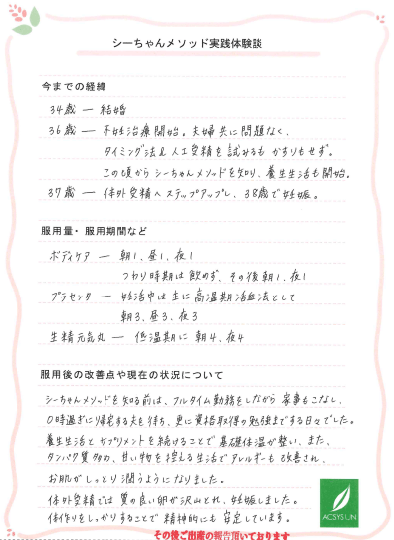 シーちゃんメソッド実践体験談
今までの経緯
34歳 ー 結婚
36歳 ー 不妊治療開始。夫婦共に問題なく、
タイミング法&人工受精を試みるもかすりもせず。
この頃からシーちゃんメソッドを知り、養生生活も開始。
37歳 ー 体外受精へステップアップし、38歳で妊娠。
服用量・服用期間など
ボディケア ー 朝1、昼1、夜1
つわり時期は飲めず、その後朝1、夜1
プラセンタ ー 妊活中は主に高温期活血法として
朝3、昼3、夜3
生精元気丸 ー 低温期に朝4、夜4
服用後の改善点や現在の状況について
シーちゃんメソッドを知る前は、フルタイム勤務をしながら家事もこなし、
0時過ぎに帰宅する夫を待ち、更に資格取得の勉強までする日々でした。
養生生活とサプリメントを続けることで基礎体温が整い、また、
タンパク質多め、甘い物を控える生活でアレルギーも改善され、
お肌がしっとり潤うようになりました。
体外受精では質の良い卵が沢山とれ、妊娠しました。
体作りをしっかりすることで精神的にも安定しています。
ACSYSUN
その後ご出産の報告頂いております